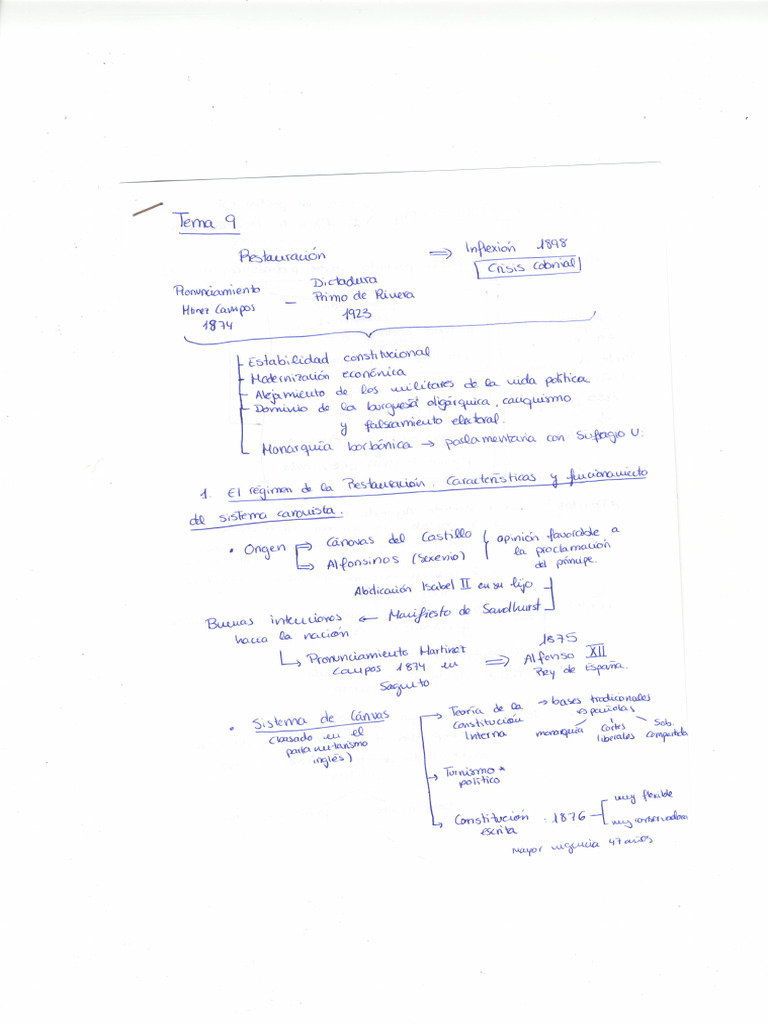 Tema 9
Restauración ⇒ Inflexión 1898
Crisis Colonial
Pronunciamiento
Mtnez Campos
1874
—
Dictadura
Primo de Rivera
1923
- Estabilidad constitucional
- Modernización económica
- Alejamiento de los militares de la vida política
- Dominio de la burguesía oligárquica, caciquismo
y falseamiento electoral.
Monarquía borbónica → parlamentaria con Sufragio U.
1. El régimen de la Restauración. Características y funcionamiento
del sistema canovista.
• Origen ⇒ Cánovas del Castillo
⇒ Alfonsinos (Sexenio)
opinión favorable a
la proclamación
del príncipe.
Abdicación Isabel II en su hijo
Buenas intenciones ← Manifiesto de Sandhurst
hacia la nación
↳ Pronunciamiento Martínez
Campos 1874 en
Sagunto
⇒ 1875
Alfonso XII
Rey de España.
• Sistema de Cánovas
(basado en el
parlamentarismo
inglés)
→ Teoría de la
Constitución
Interna
→ bases tradicionales
españolas
monarquía
Cortes
liberales
Sob.
compartida
→ Turnismo *
político
→ Constitución : 1876
escrita
muy flexible
muy conservadora
Mayor vigencia 47 años